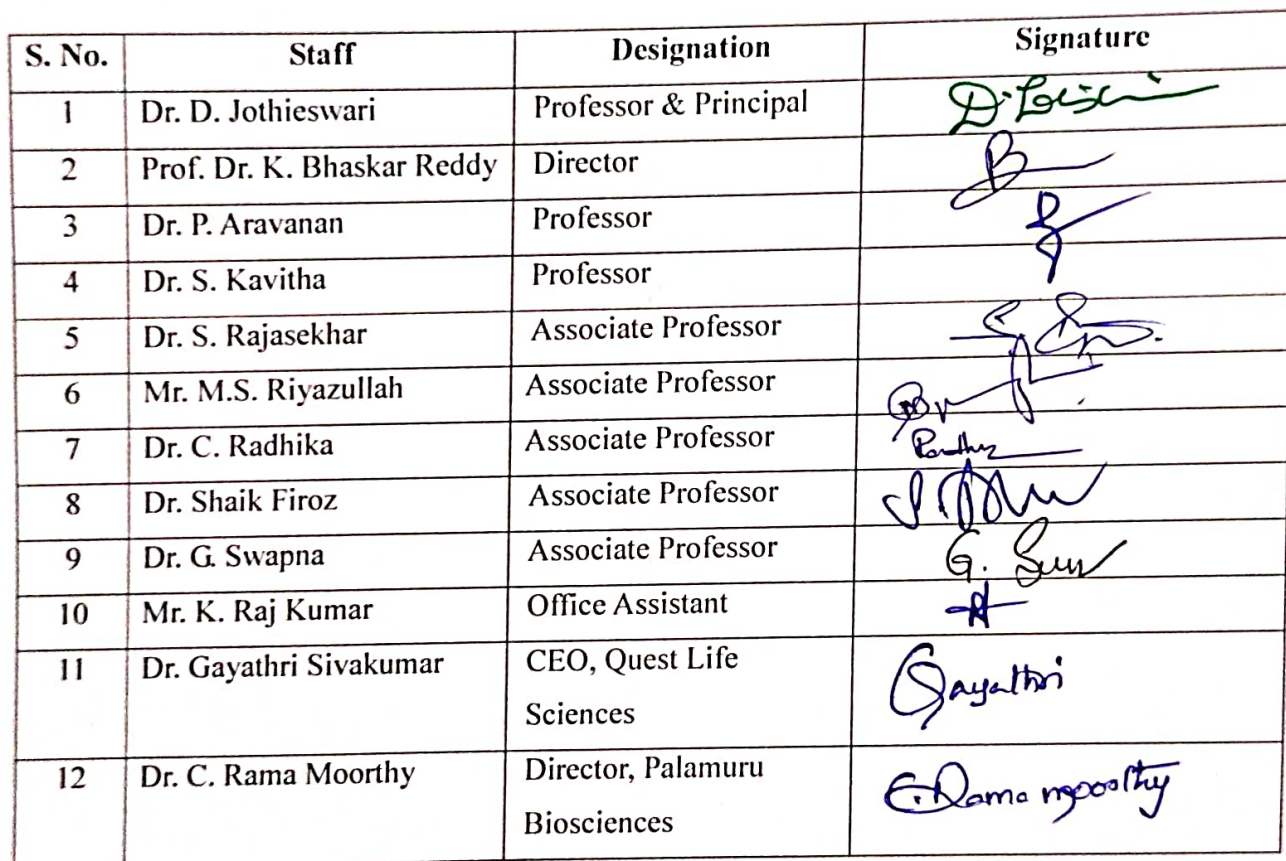 S. No. Staff Designation Signature
1 Dr. D. Jothieswari Professor & Principal
2 Prof. Dr. K. Bhaskar Reddy Director
3 Dr. P. Aravanan Professor
4 Dr. S. Kavitha Professor
5 Dr. S. Rajasekhar Associate Professor
6 Mr. M.S. Riyazullah Associate Professor
7 Dr. C. Radhika Associate Professor
8 Dr. Shaik Firoz Associate Professor
9 Dr. G. Swapna Associate Professor G.
10 Mr. K. Raj Kumar Office Assistant
11 Dr. Gayathri Sivakumar CEO, Quest Life Gayathri
Sciences
12 Dr. C. Rama Moorthy Director, Palamuru C. Rama moorthy
Biosciences